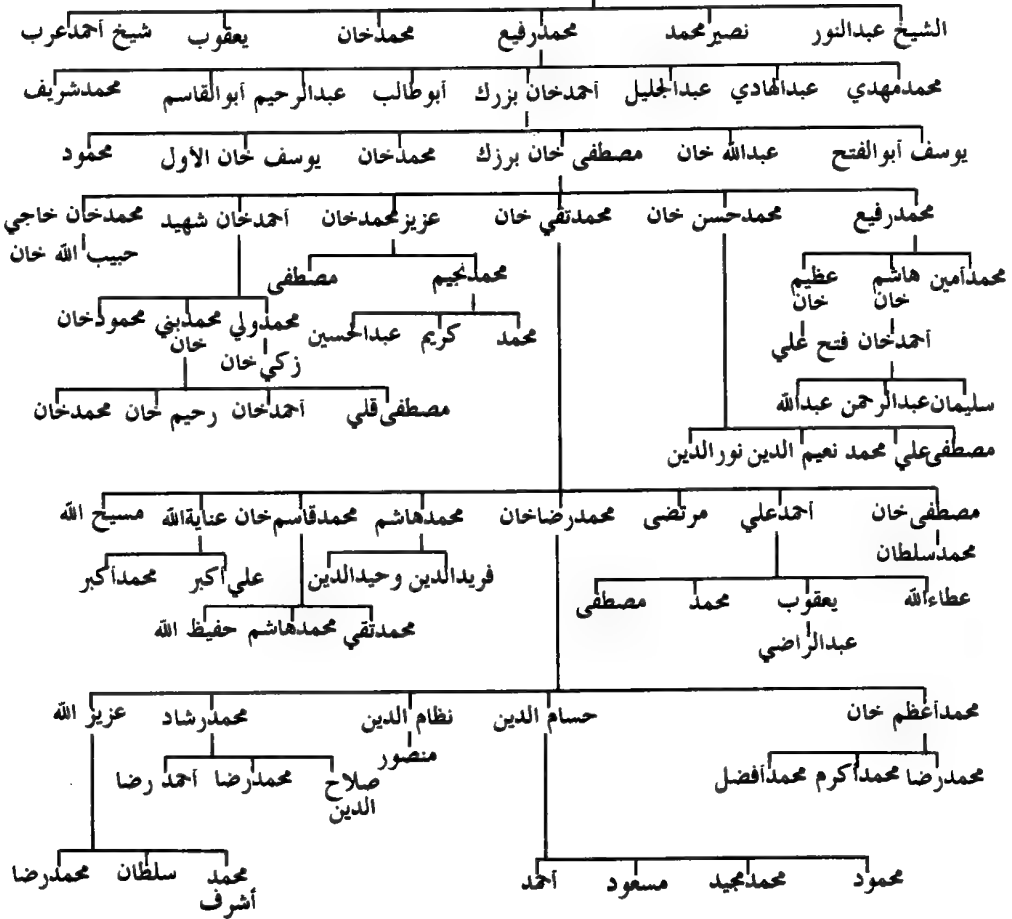 الشيخ عبدالنور نصيرمحمد محمدرفيع محمدخان يعقوب شيخ أحمدعرب
محمدمهدي عبدالهادي عبدالجليل أحمدخان بزرك أبوطالب عبدالرحيم أبوالقاسم محمدشريف
يوسف أبوالفتح عبدالله خان مصطفى خان برزك محمدخان يوسف خان الأول محمود
محمدرفيع محمدحسن خان محمدتقي خان عزيزمحمدخان أحمدخان شهيد محمدخان خاجي
حبيب الله خان
محمدأمين هاشم خان عظيم خان محمدنجيم مصطفى
محمدولي محمدبني خان محمودخان
أحمدخان فتح علي محمد كريم عبدالحسين
زكي خان
سليمان عبدالرحمن عبدالله مصطفى قلي أحمدخان رحيم خان محمدخان
مصطفى علي محمد نعيم الدين نورالدين
مصطفى خان أحمدعلي مرتضى محمدرضاخان محمدهاشم محمدقاسم خان عنايةالله مسيح الله
محمدسلطان
فريدالدين وحيدالدين علي أكبر محمدأكبر
عطاءالله يعقوب محمد مصطفى
محمدتقي محمدهاشم حفيظ الله
عبدالراضي
محمدأعظم خان حسام الدين نظام الدين محمدرشاد عزيز الله
منصور
محمدرضا محمدأكرم محمدأفضل صلاح الدين محمدرضا أحمد رضا
محمود محمدمجيد مسعود أحمد محمد أشرف سلطان محمدرضا